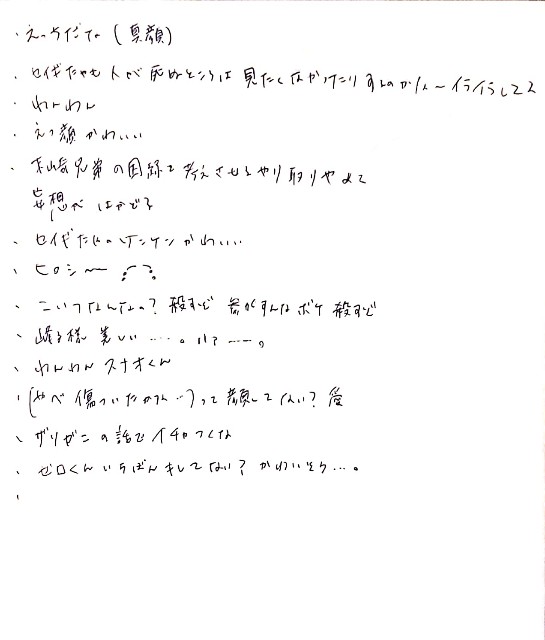 ・えっちだな(真顔)
・セイジだも人が死ぬところは見たくなかったりすんのかな〜イライラしてス
・わんわん
・えっ顔かわいい
・末崎兄弟の因縁を考えさせるやり取りやめて
妄想がはかどる
・セイジたんのケンケンかわいい
・ヒロシ〜
・こいつなんなの?殺すぞ 暮がすんなボケ殺すぞ
・様美しい……。!!?……。
・わんわんスナオくん
・(やべ傷ついたかな…)って顔してない?愛
・ザリガニの話でイチャつくな
・ゼロくんいちばんキしてない?かわいそう…。
・